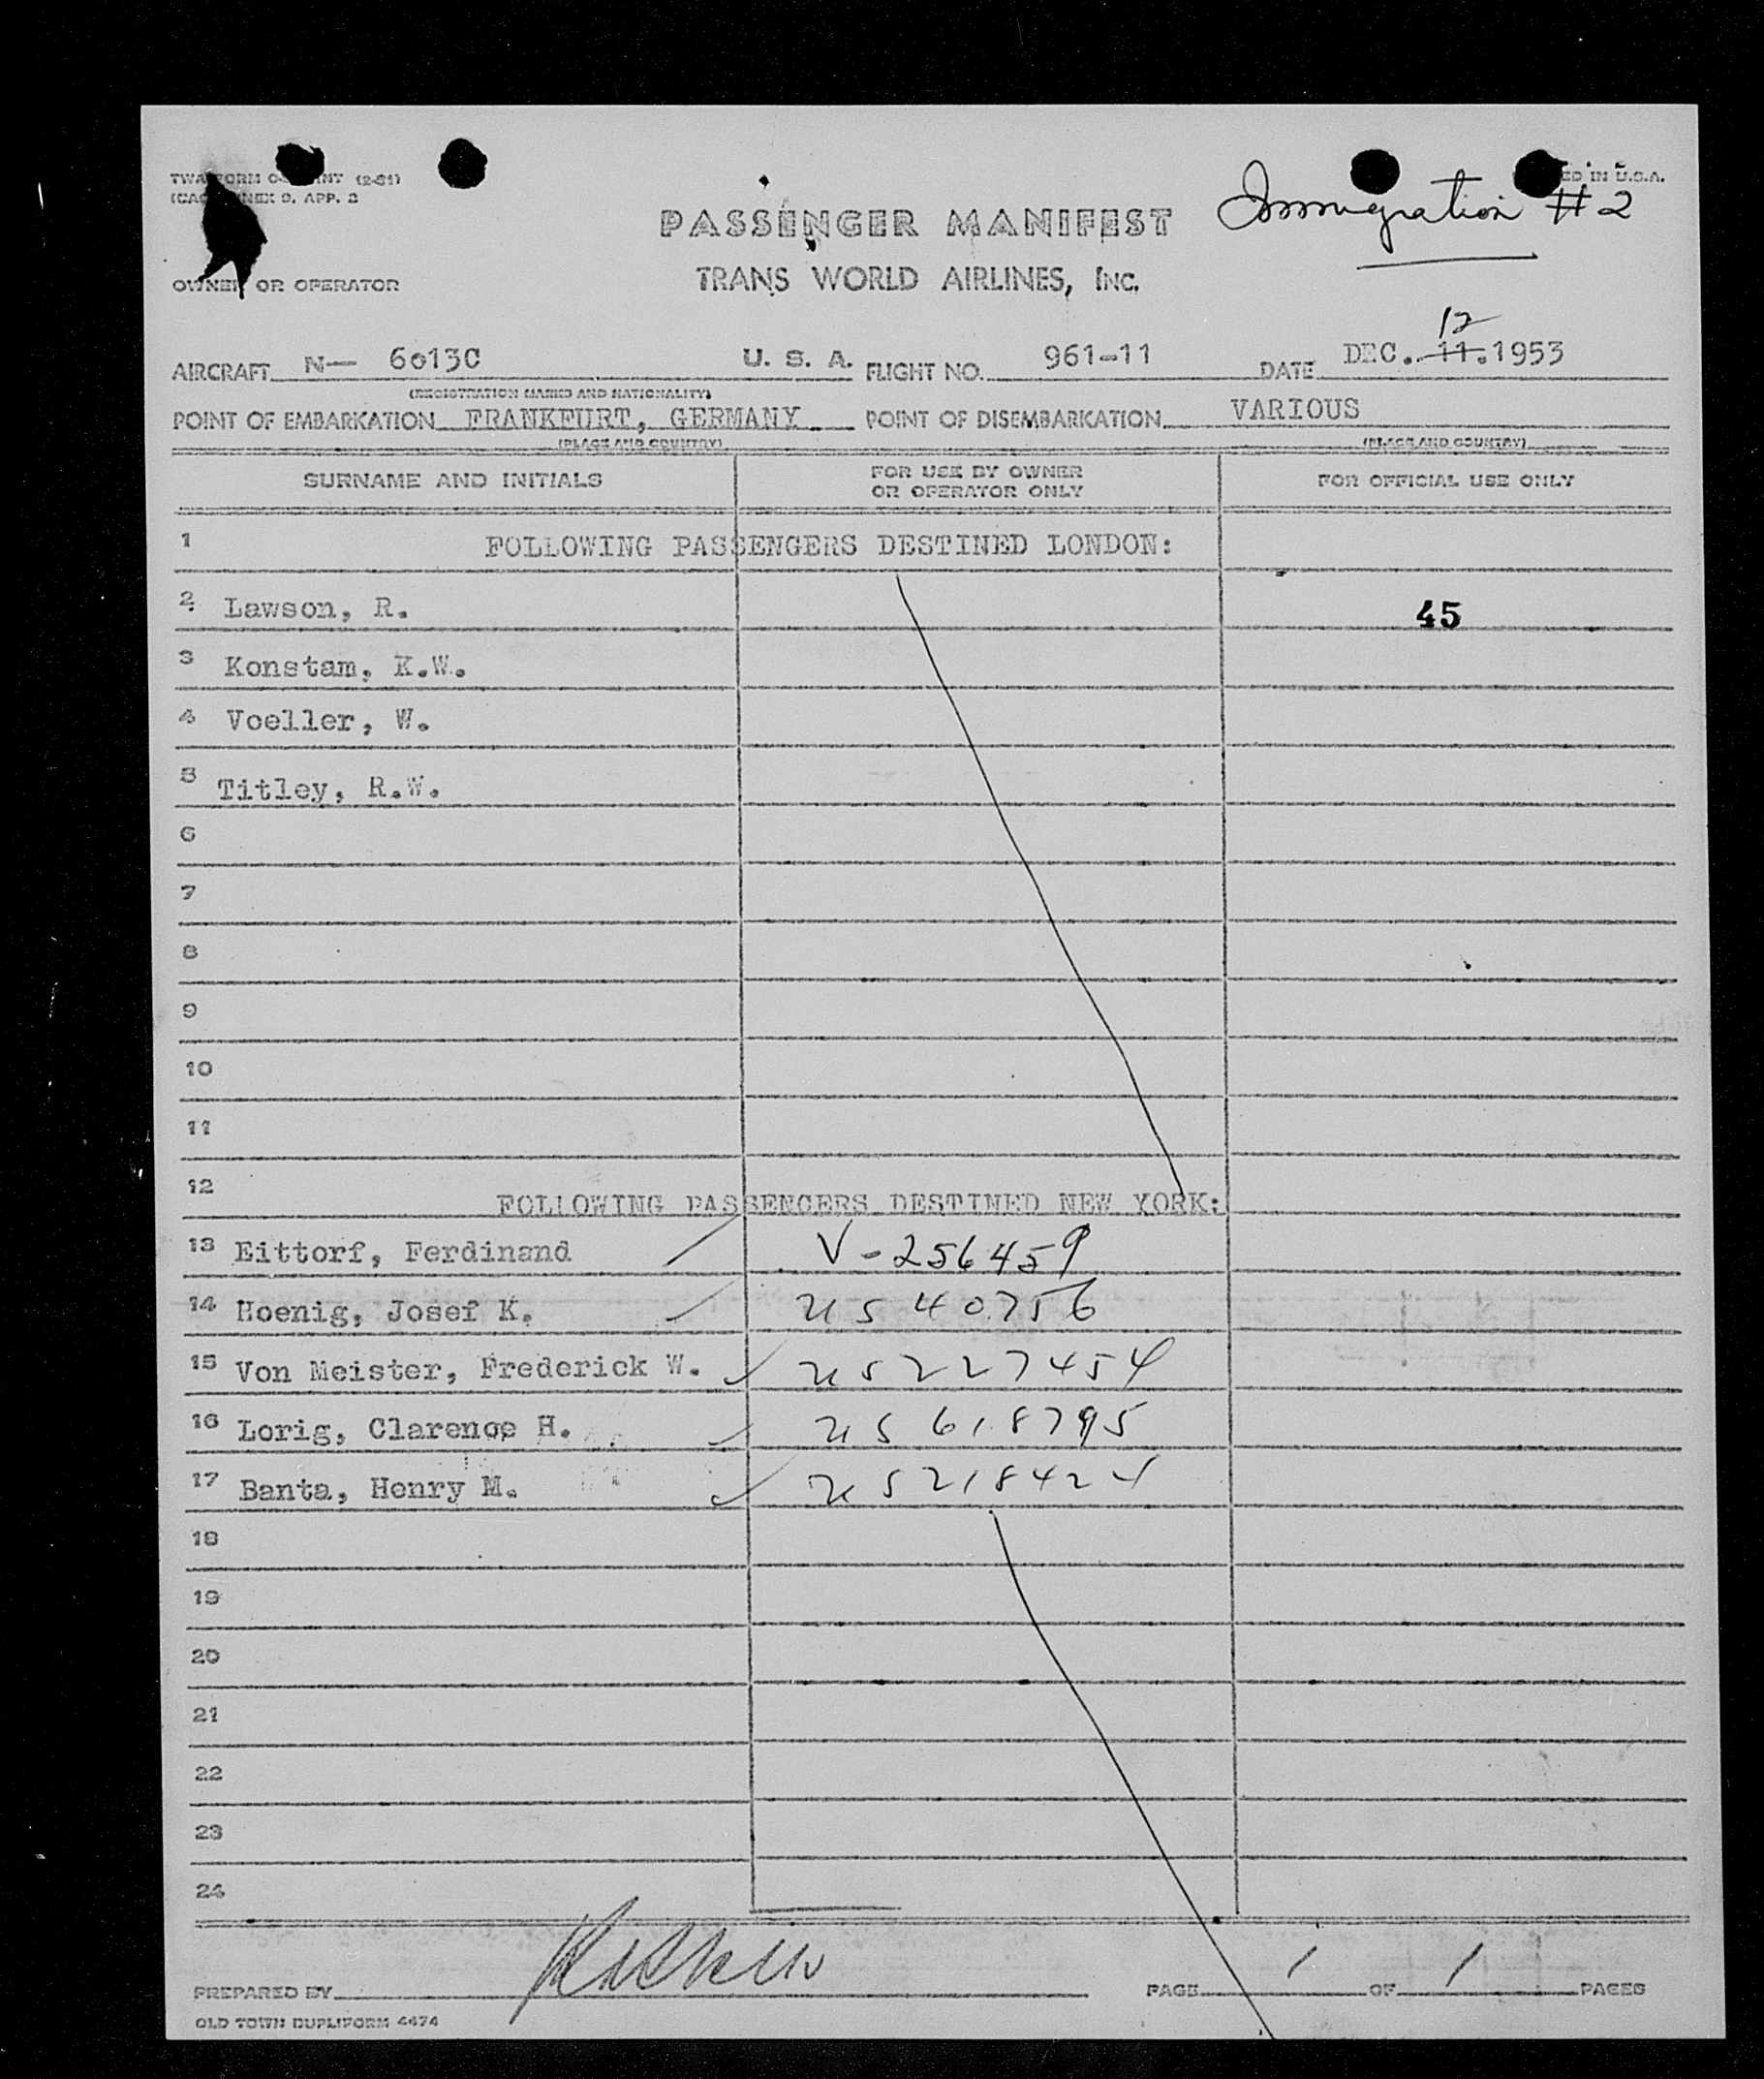 TWA FORM
(2-51)
APP. 2
IN U.S.A.
Immigration #2
PASSENGER MANIFEST
TRANS WORLD AIRLINES, INC.
OWNER OR OPERATOR
12
AIRCRAFT N— 6013C U. S. A. FLIGHT NO. 961-11 DATE DEC. 11. 1953
(REGISTRATION MARKS AND NATIONALITY)
POINT OF EMBARKATION FRANKFURT, GERMANY POINT OF DISEMBARKATION VARIOUS
(PLACE AND COUNTRY) (PLACE AND COUNTRY)
SURNAME AND INITIALS
FOR USE BY OWNER
OR OPERATOR ONLY
FOR OFFICIAL USE ONLY
1 FOLLOWING PASSENGERS DESTINED LONDON:
2 Lawson, R. 45
3 Konstam, K.W.
4 Voeller, W.
5 Titley, R.W.
6
7
8
9
10
11
12 FOLLOWING PASSENGERS DESTINED NEW YORK:
13 Eittorf, Ferdinand V-256459
14 Hoenig, Josef K. US 40756
15 Von Meister, Frederick W. US 227454
16 Lorig, Clarence H. US 618795
17 Banta, Henry M. US 218424
18
19
20
21
22
23
24
PREPARED BY PAGE 1 OF 1 PAGES
OLD TOWN DUPLIFORM 4474